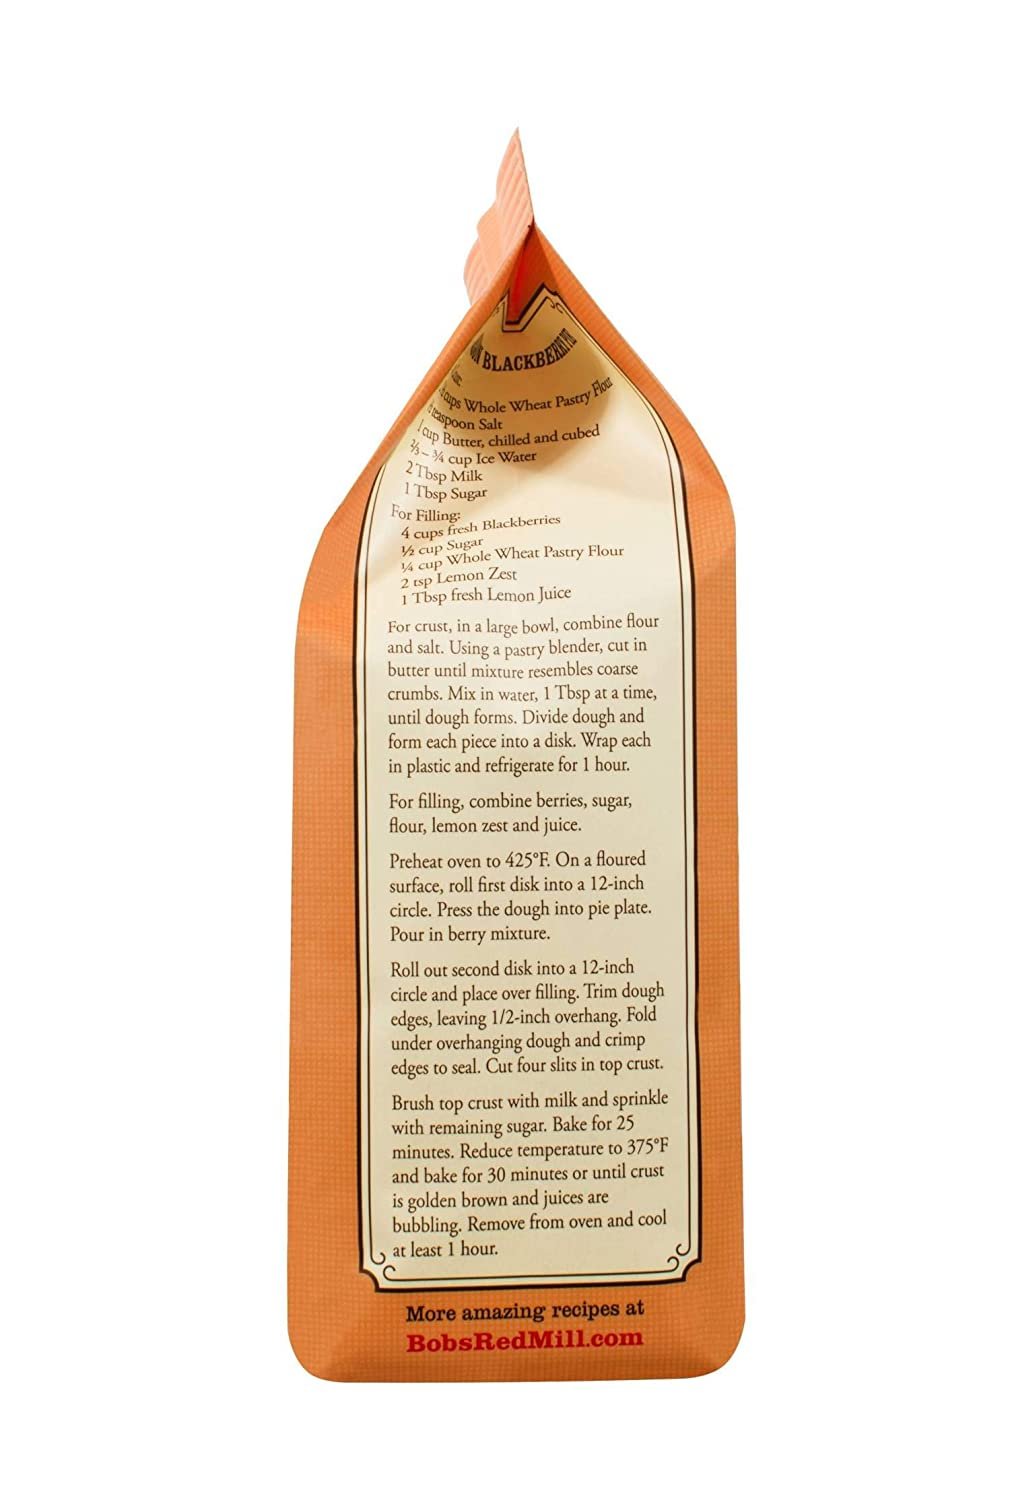 BLACKBERRY PIE
cups Whole Wheat Pastry Flour
teaspoon Salt
1 cup Butter, chilled and cubed
⅔ – ¾ cup Ice Water
2 Tbsp Milk
1 Tbsp Sugar
For Filling:
4 cups fresh Blackberries
½ cup Sugar
¼ cup Whole Wheat Pastry Flour
2 tsp Lemon Zest
1 Tbsp fresh Lemon Juice
For crust, in a large bowl, combine flour
and salt. Using a pastry blender, cut in
butter until mixture resembles coarse
crumbs. Mix in water, 1 Tbsp at a time,
until dough forms. Divide dough and
form each piece into a disk. Wrap each
in plastic and refrigerate for 1 hour.
For filling, combine berries, sugar,
flour, lemon zest and juice.
Preheat oven to 425°F. On a floured
surface, roll first disk into a 12-inch
circle. Press the dough into pie plate.
Pour in berry mixture.
Roll out second disk into a 12-inch
circle and place over filling. Trim dough
edges, leaving 1/2-inch overhang. Fold
under overhanging dough and crimp
edges to seal. Cut four slits in top crust.
Brush top crust with milk and sprinkle
with remaining sugar. Bake for 25
minutes. Reduce temperature to 375°F
and bake for 30 minutes or until crust
is golden brown and juices are
bubbling. Remove from oven and cool
at least 1 hour.
More amazing recipes at
BobsRedMill.com